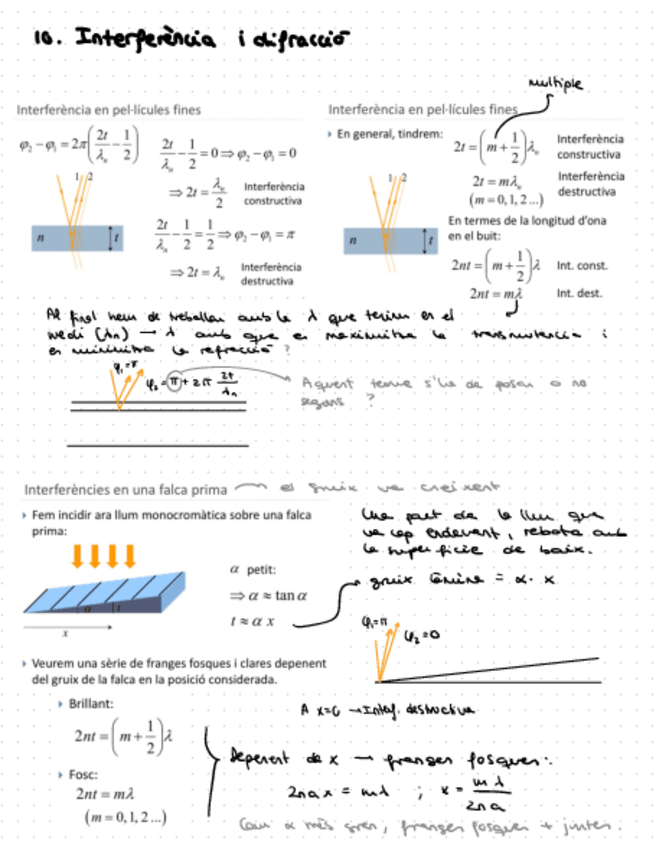 10. Interferència i difracció
Interferència en pel·lícules fines
φ₂ − φ₁ = 2π(2t/λₙ − 1/2)
2t/λₙ − 1/2 = 0 ⇒ φ₂ − φ₁ = 0
⇒ 2t = λₙ/2 Interferència constructiva
2t/λₙ − 1/2 = 1/2 ⇒ φ₂ − φ₁ = π
⇒ 2t = λₙ Interferència destructiva
1 2
n t
multiple
Interferència en pel·lícules fines
En general, tindrem:
2t = (m + 1/2)λₙ Interferència constructiva
2t = mλₙ Interferència destructiva
(m = 0,1,2...)
En termes de la longitud d'ona
en el buit:
2nt = (m + 1/2)λ Int. const.
2nt = mλ Int. dest.
1 2
n t
Al final hem de treballar amb la λ que tenim en el
medi (λn) → λ amb que es maximitza la transmitencia i
es minimitza la refracció ?
φ₁=π
φ₂ = π + 2π 2t/λn
Aquest terme s'ha de posar o no
segons ?
Interferències en una falca prima
el gruix va creixent
Fem incidir ara llum monocromàtica sobre una falca
prima:
α petit:
⇒ α ≈ tan α
t ≈ α x
α t
x
Una part de la llum que
va cap endavant, rebota amb
la superficie de baix.
gruix = α · x
φ₁=π
φ₂=0
Veurem una sèrie de franges fosques i clares depenent
del gruix de la falca en la posició considerada.
Brillant:
2nt = (m + 1/2)λ
Fosc:
2nt = mλ
(m = 0,1,2...)
A x=0 → Interf. destructiva
Depenent de x → franges fosques:
2nαx = mλ ; x = mλ/2nα
Com α més gran, franges fosques + juntes.